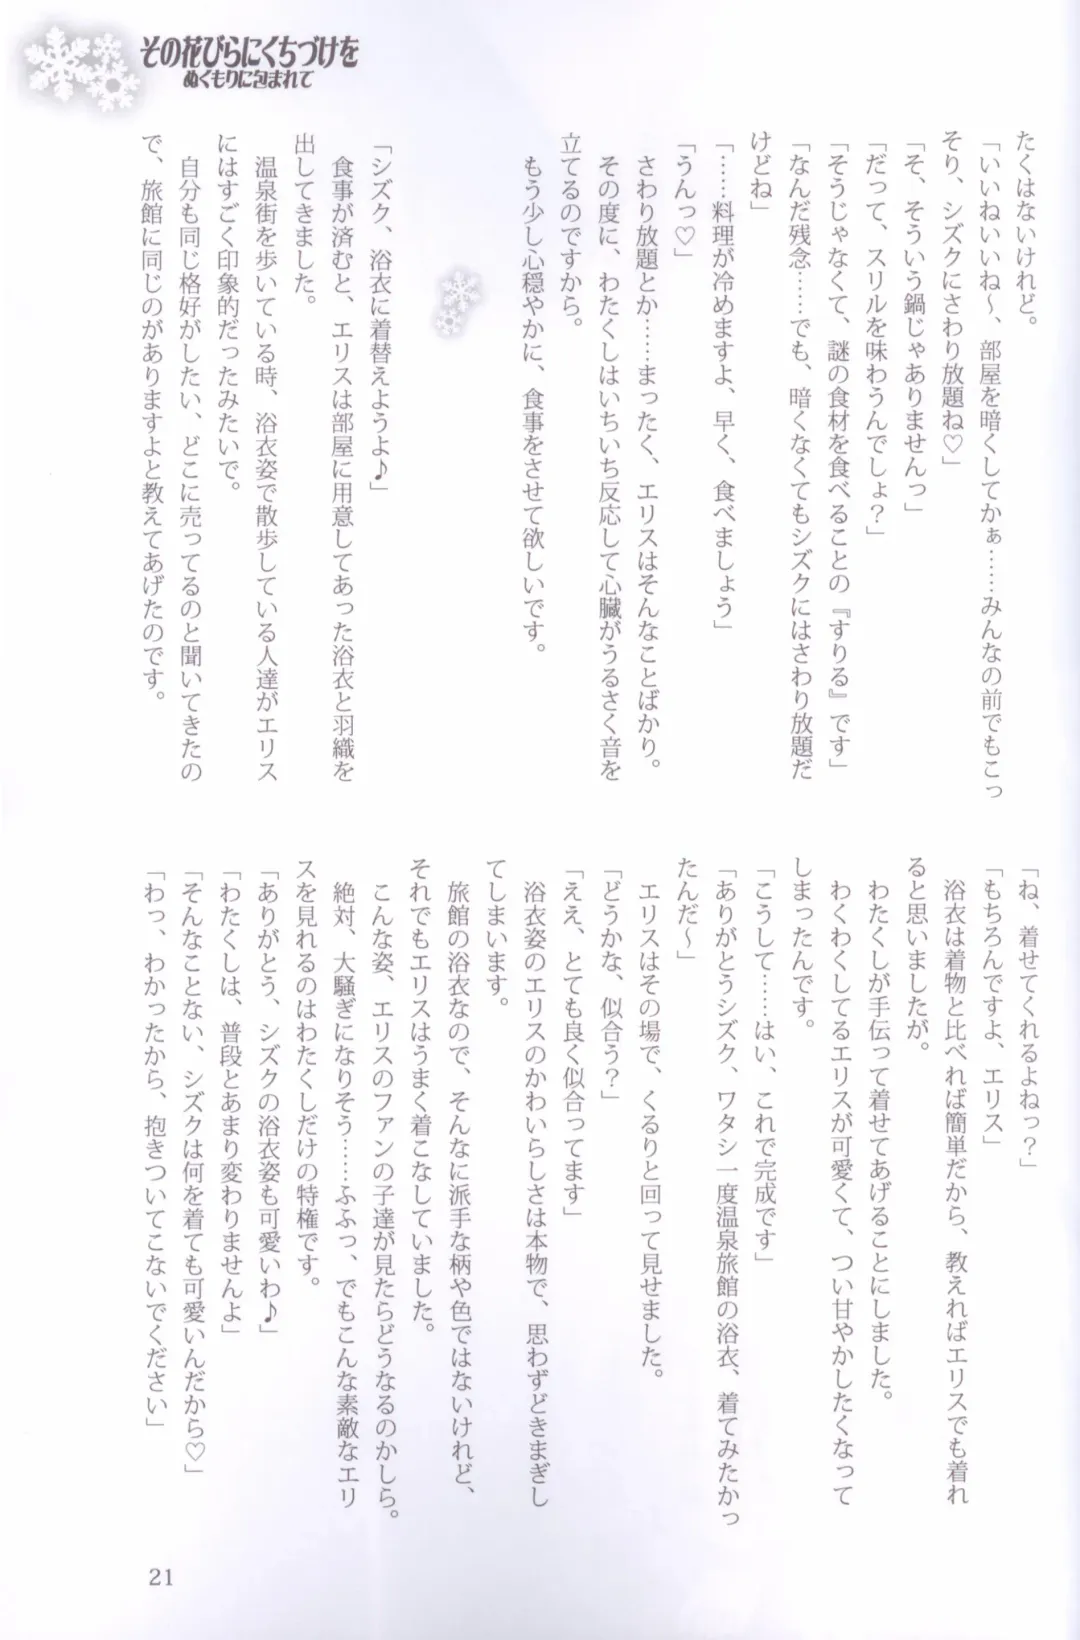 その花びらにくちづけを
ぬくもりに包まれて
たくはないけれど。
「いいねいいね～、部屋を暗くしてかぁ……みんなの前でもこっ
そり、シズクにさわり放題ね♡」
「そ、そういう鍋じゃありませんっ」
「だって、スリルを味わうんでしょ？」
「そうじゃなくて、謎の食材を食べることの『すりる』です」
「なんだ残念……でも、暗くなくてもシズクにはさわり放題だ
けどね」
「……料理が冷めますよ、早く、食べましょう」
「うんっ♡」
さわり放題とか……まったく、エリスはそんなことばかり。
その度に、わたくしはいちいち反応して心臓がうるさく音を
立てるのですから。
もう少し心穏やかに、食事をさせて欲しいです。
「シズク、浴衣に着替えようよ♪」
食事が済むと、エリスは部屋に用意してあった浴衣と羽織を
出してきました。
温泉街を歩いている時、浴衣姿で散歩している人達がエリス
にはすごく印象的だったみたいで。
自分も同じ格好がしたい、どこに売ってるのと聞いてきたの
で、旅館に同じのがありますよと教えてあげたのです。
「ね、着せてくれるよねっ？」
「もちろんですよ、エリス」
浴衣は着物と比べれば簡単だから、教えればエリスでも着れ
ると思いましたが。
わたくしが手伝って着せてあげることにしました。
わくわくしてるエリスが可愛くて、つい甘やかしたくなって
しまったんです。
「こうして……はい、これで完成です」
「ありがとうシズク、ワタシ一度温泉旅館の浴衣、着てみたかっ
たんだ～」
エリスはその場で、くるりと回って見せました。
「どうかな、似合う？」
「ええ、とても良く似合ってます」
浴衣姿のエリスのかわいらしさは本物で、思わずどきまぎし
てしまいます。
旅館の浴衣なので、そんなに派手な柄や色ではないけれど、
それでもエリスはうまく着こなしていました。
こんな姿、エリスのファンの子達が見たらどうなるのかしら。
絶対、大騒ぎになりそう……ふふっ、でもこんな素敵なエリ
スを見れるのはわたくしだけの特権です。
「ありがとう、シズクの浴衣姿も可愛いわ♪」
「わたくしは、普段とあまり変わりませんよ」
「そんなことない、シズクは何を着ても可愛いんだから♡」
「わっ、わかったから、抱きついてこないでください」
21